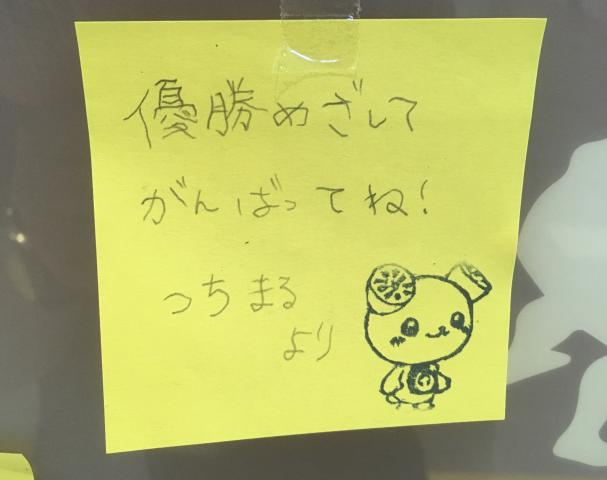 優勝めざして
がんばってね!
つちまる
より